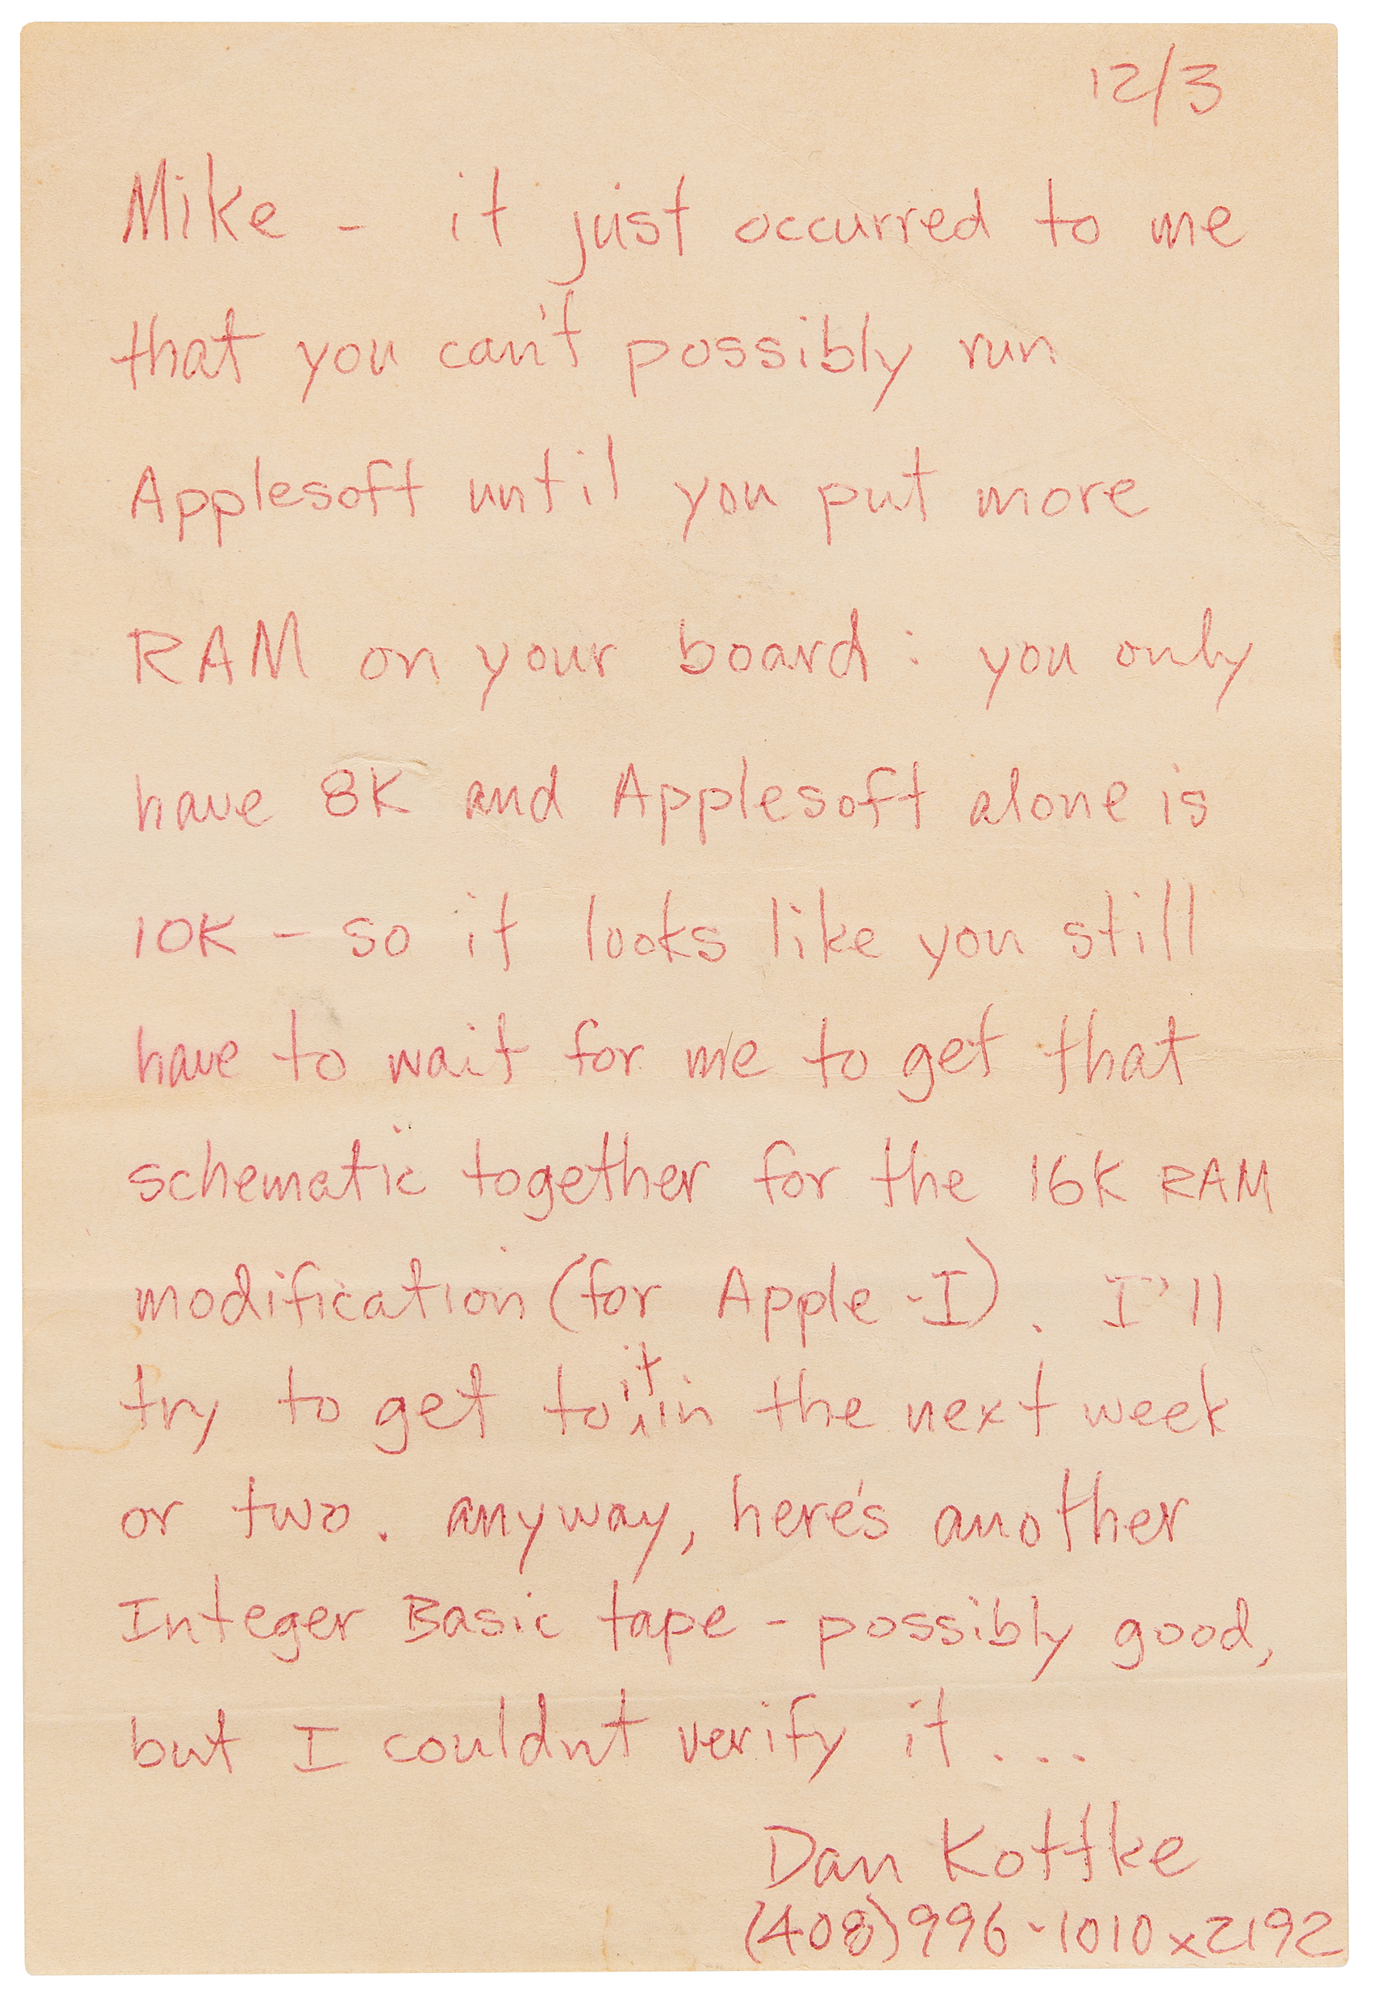 12/3
Mike - it just occurred to me
that you can't possibly run
Applesoft until you put more
RAM on your board : you only
have 8K and Applesoft alone is
10K - so it looks like you still
have to wait for me to get that
schematic together for the 16K RAM
modification (for Apple-I). I'll
try to get to it in the next week
or two. anyway, here's another
Integer Basic tape - possibly good,
but I couldnt verify it ...
Dan Kottke
(408) 996-1010 x2192